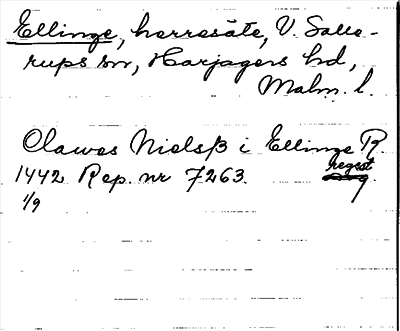 Ellinge, herresäte, V. Salle-
rups sn, Harjagers hd,
Malm. l.
Clawes Nielsß i Ellinge R.
1442 Rep. nr 7263. regest
1/9